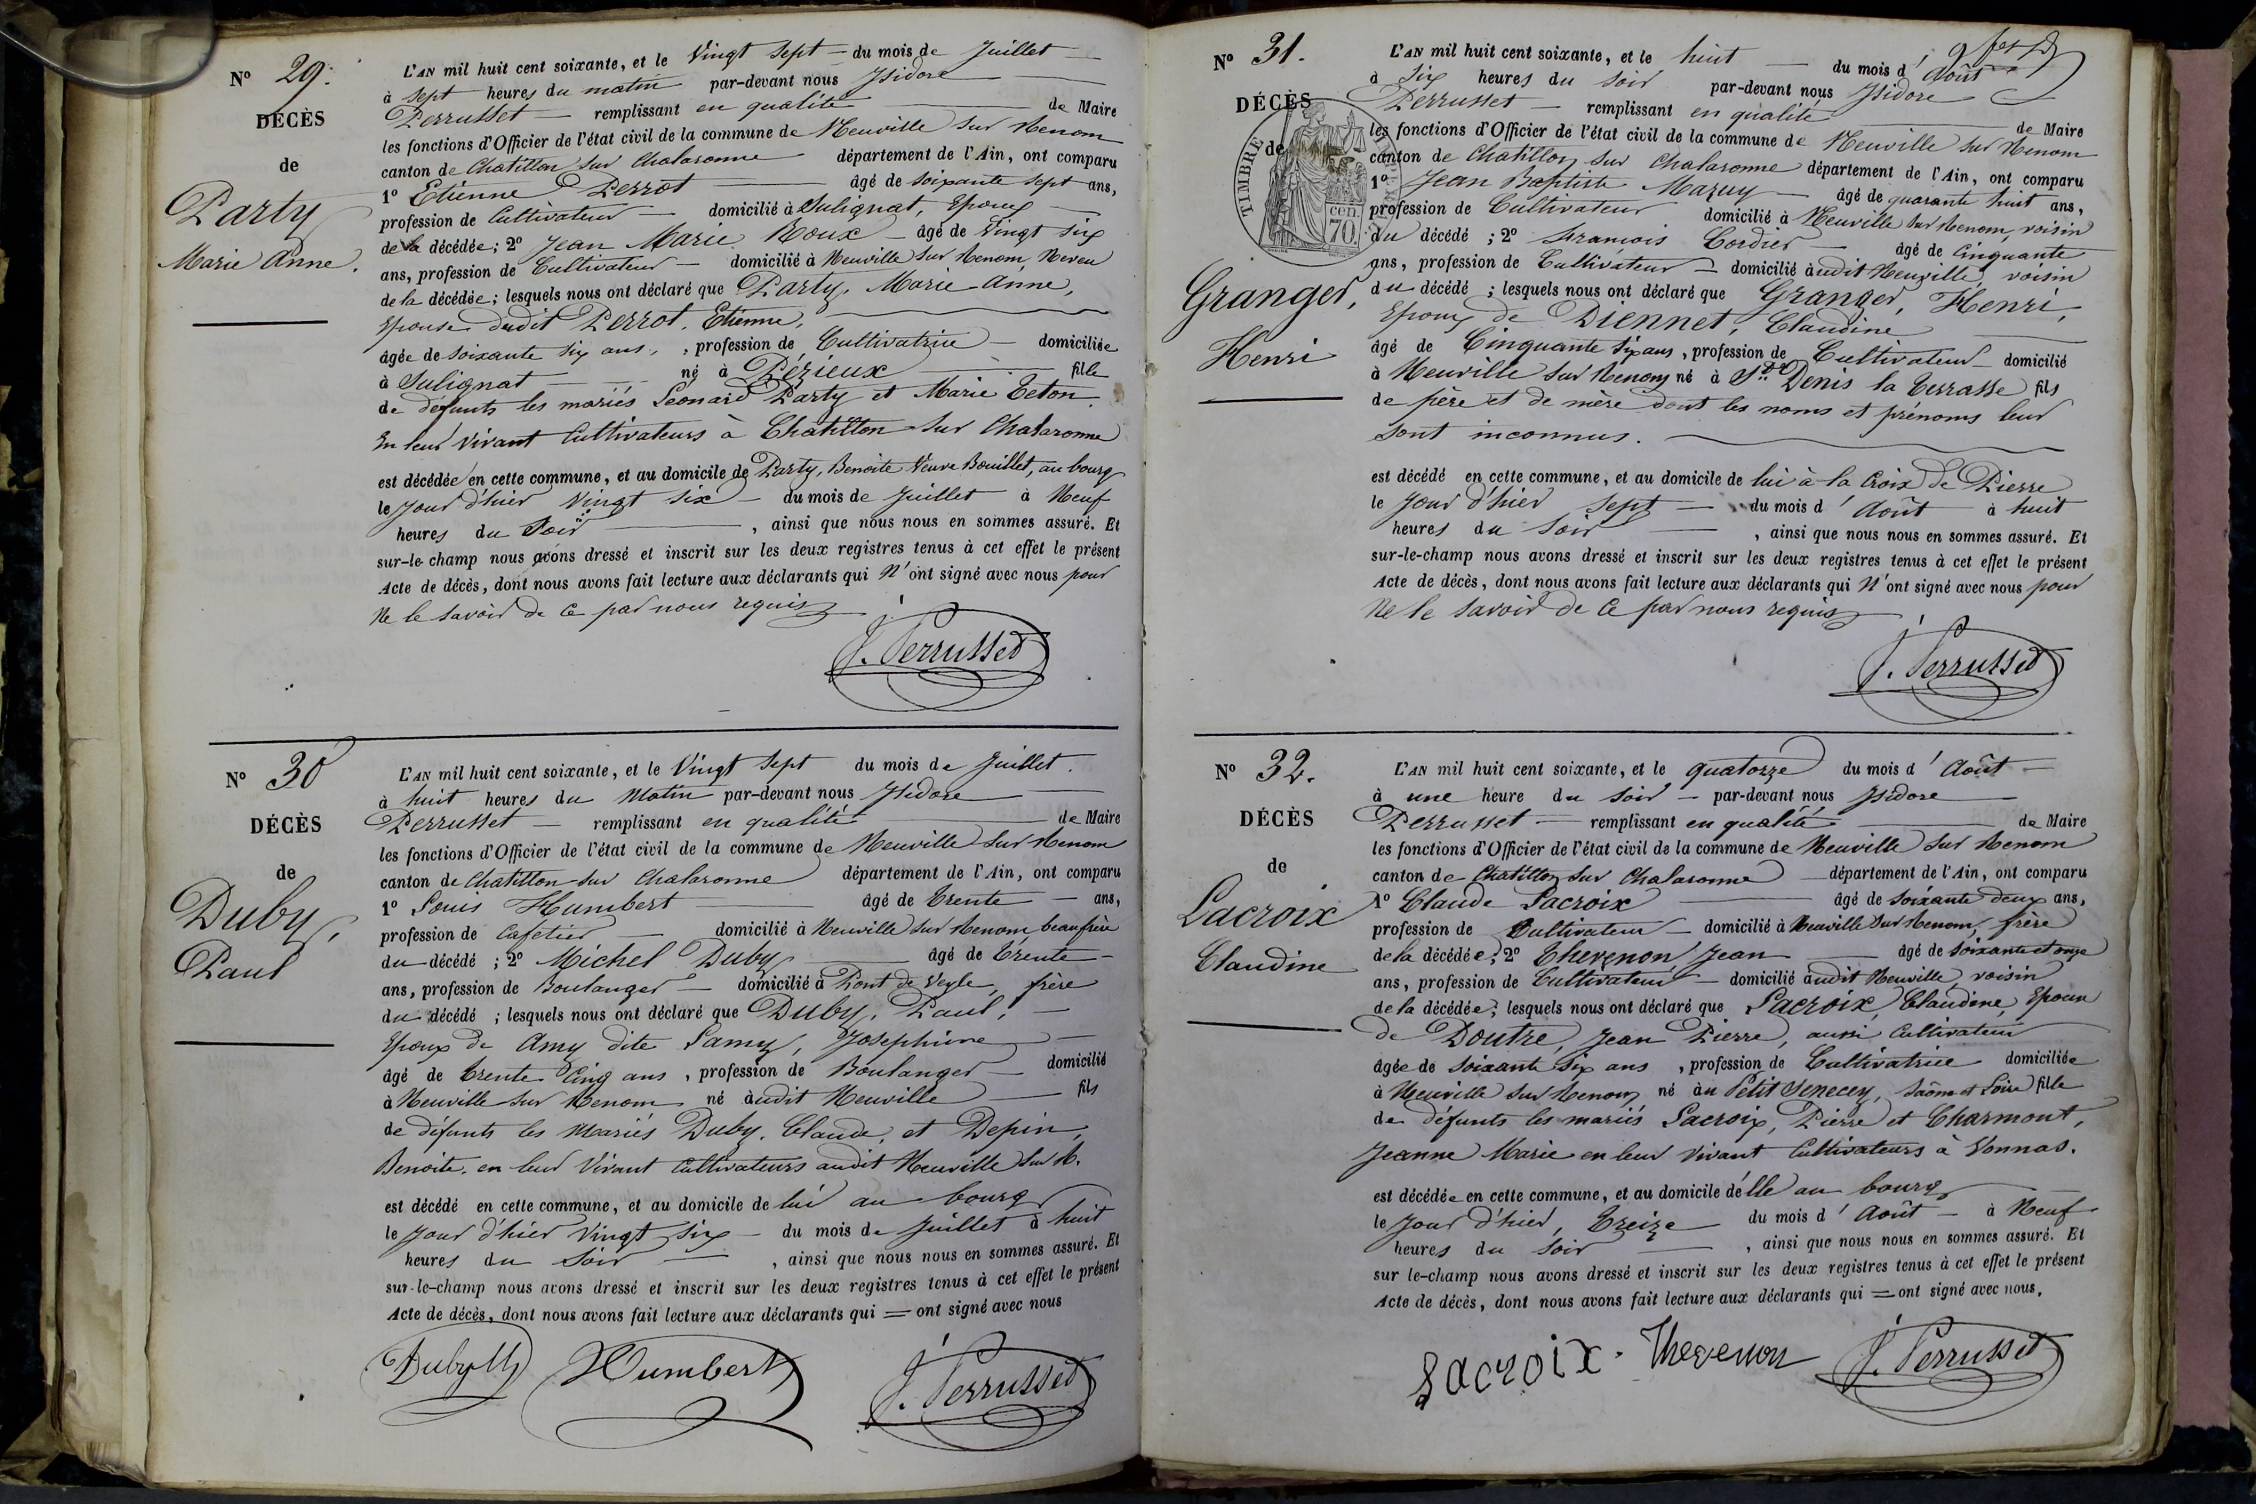 N° 29.
DÉCÈS
de
Party
Marie Anne.
L'AN mil huit cent soixante, et le Vingt Sept du mois de Juillet
à Sept heures du matin par-devant nous Isidore
Perrusset remplissant en qualité de Maire
les fonctions d'Officier de l'état civil de la commune de Neuville sur Renom
canton de Chatillon sur Chalaronne département de l'Ain, ont comparu
1° Etienne Perrot âgé de soixante sept ans,
profession de Cultivateur domicilié à Sulignat, Epoux
de la décédée; 2° Jean Marie Roux âgé de Vingt six
ans, profession de Cultivateur domicilié à Neuville sur Renom Neveu
de la décédée; lesquels nous ont déclaré que Party, Marie Anne,
Epouse dudit Perrot, Etienne,
âgée de soixante six ans, profession de Cultivatrice domiciliée
à Sulignat né à Pézieux fille
de défunts les mariés Léonard Party et Marie Teton.
En leur vivant Cultivateurs à Chatillon sur Chalaronne
est décédée en cette commune, et au domicile de Party, Benoite Veuve Bouillet, au bourg
le jour d'hier Vingt six du mois de Juillet à Neuf
heures du Soir, ainsi que nous nous en sommes assuré. Et
sur-le-champ nous avons dressé et inscrit sur les deux registres tenus à cet effet le présent
Acte de décès, dont nous avons fait lecture aux déclarants qui N'ont signé avec nous pour
Ne le savoir de ce par nous requis
J. Perrusset
N° 30
DÉCÈS
de
Duby,
Paul
L'AN mil huit cent soixante, et le Vingt Sept du mois de Juillet.
à huit heures du Matin par-devant nous Isidore
Perrusset remplissant en qualité de Maire
les fonctions d'Officier de l'état civil de la commune de Neuville sur Renom
canton de Chatillon sur Chalaronne département de l'Ain, ont comparu
1° Louis Humbert âgé de trente ans,
profession de Cafetier domicilié à Neuville sur Renom beaufrère
du décédé; 2° Michel Duby âgé de trente
ans, profession de Boulanger domicilié à Pont de Veyle, frère
du décédé; lesquels nous ont déclaré que Duby, Paul,
Epoux de Amy dite Lamy, Josephine
âgé de trente Cinq ans, profession de Boulanger domicilié
à Neuville sur Renom né audit Neuville fils
de défunts les Mariés Duby, Claude, et Depin,
Benoite, en leur vivant Cultivateurs audit Neuville sur R.
est décédé en cette commune, et au domicile de lui au bourg
le jour d'hier Vingt six du mois de Juillet à huit
heures du Soir, ainsi que nous nous en sommes assuré. Et
sur-le-champ nous avons dressé et inscrit sur les deux registres tenus à cet effet le présent
Acte de décès, dont nous avons fait lecture aux déclarants qui = ont signé avec nous
Duby M Humbert J. Perrusset
N° 31.
DÉCÈS
de
TIMBRE
cen.
70.
Granger,
Henri
L'AN mil huit cent soixante, et le huit du mois d'Août
à Six heures du soir par-devant nous Isidore
Perrusset remplissant en qualité de Maire
les fonctions d'Officier de l'état civil de la commune de Neuville sur Renom
canton de Chatillon sur Chalaronne département de l'Ain, ont comparu
1° Jean Baptiste Mazuy âgé de quarante huit ans,
profession de Cultivateur domicilié à Neuville sur Renom, voisin
du décédé; 2° Francois Cordier âgé de Cinquante
ans, profession de Cultivateur domicilié audit Neuville, voisin
du décédé; lesquels nous ont déclaré que Granger, Henri,
Epoux de Diennet, Claudine
âgé de Cinquante Six ans, profession de Cultivateur domicilié
à Neuville sur Renom né à St Denis la Terrasse fils
de père et de mère dont les noms et prénoms leur
sont inconnus.
est décédé en cette commune, et au domicile de lui à la Croix de Pierre
le jour d'hier sept du mois d'Août à huit
heures du Soir, ainsi que nous nous en sommes assuré. Et
sur-le-champ nous avons dressé et inscrit sur les deux registres tenus à cet effet le présent
Acte de décès, dont nous avons fait lecture aux déclarants qui N'ont signé avec nous pour
Ne le savoir de ce par nous requis
J. Perrusset
N° 32.
DÉCÈS
de
Lacroix
Claudine
L'AN mil huit cent soixante, et le quatorze du mois d'Août
à une heure du soir par-devant nous Isidore
Perrusset remplissant en qualité de Maire
les fonctions d'Officier de l'état civil de la commune de Neuville sur Renom
canton de Chatillon sur Chalaronne département de l'Ain, ont comparu
1° Claude Lacroix âgé de soixante deux ans,
profession de Cultivateur domicilié à Neuville sur Renom, frère
de la décédée; 2° Thevenon Jean âgé de soixante et onze
ans, profession de Cultivateur domicilié audit Neuville, voisin
de la décédée; lesquels nous ont déclaré que Lacroix, Claudine, Epouse
de Doutre, Jean Pierre, aussi Cultivateur
âgée de soixante Six ans, profession de Cultivatrice domiciliée
à Neuville sur Renom né au Petit Senecey, Saône et Loire fille
de défunts les mariés Lacroix, Pierre et Charmont,
Jeanne Marie en leur vivant Cultivateurs à Vonnas.
est décédée en cette commune, et au domicile d'elle au bourg
le jour d'hier, Treize du mois d'Août à Neuf
heures du Soir, ainsi que nous nous en sommes assuré. Et
sur le-champ nous avons dressé et inscrit sur les deux registres tenus à cet effet le présent
Acte de décès, dont nous avons fait lecture aux déclarants qui = ont signé avec nous,
Lacroix. Thevenon J. Perrusset